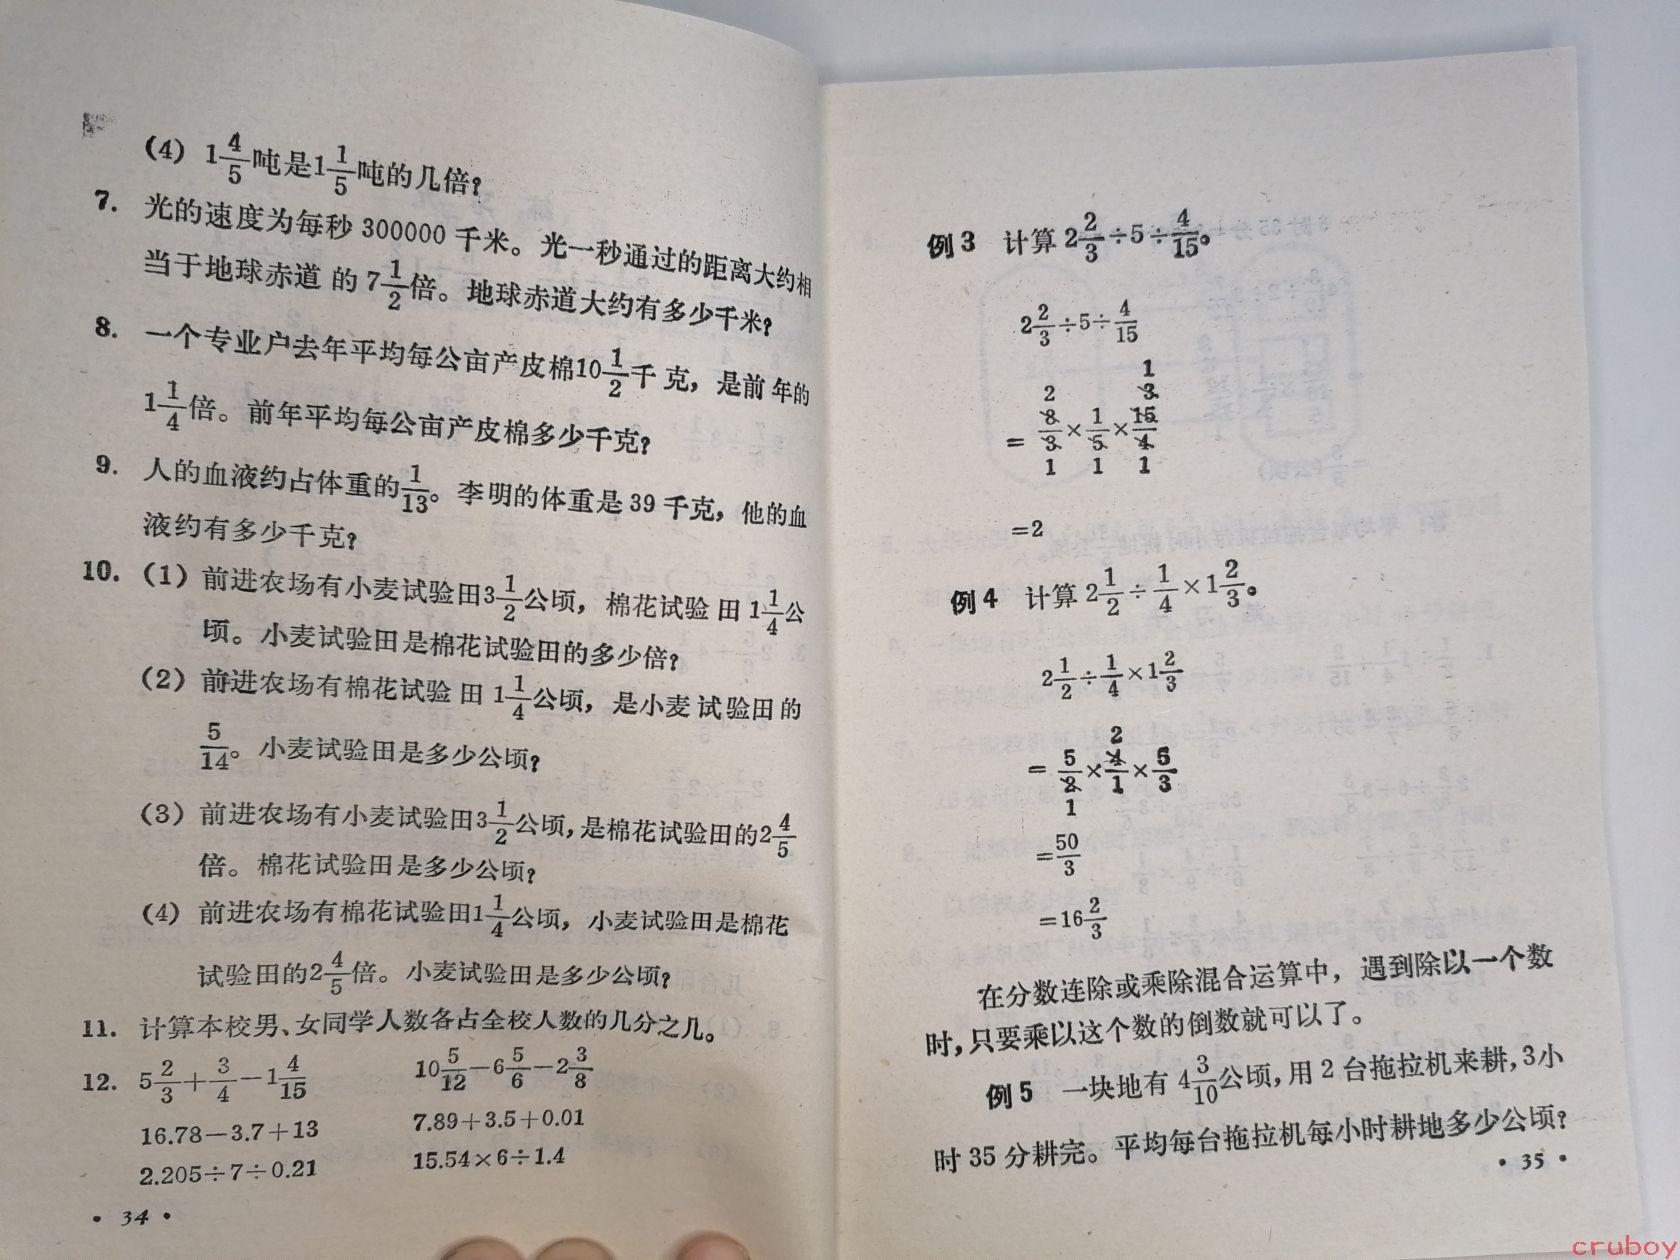 (4) 1 4/5 吨是 1 1/5 吨的几倍?
7. 光的速度为每秒 300000 千米。光一秒通过的距离大约相
当于地球赤道 的 7 1/2 倍。地球赤道大约有多少千米?
8. 一个专业户去年平均每公亩产皮棉 10 1/2 千 克, 是前 年的
1 1/4 倍。前年平均每公亩产皮棉多少千克?
9. 人的血液约占体重的 1/13。李明的体重是 39 千克, 他的血
液约有多少千克?
10. (1) 前进农场有小麦试验田 3 1/2 公顷, 棉花试验 田 1 1/4 公
顷。小麦试验田是棉花试验田的多少倍?
(2) 前进农场有棉花试验 田 1 1/4 公顷, 是小麦试验田的
5/14。小麦试验田是多少公顷?
(3) 前进农场有小麦试验田 3 1/2 公顷, 是棉花试验田的 2 4/5
倍。棉花试验田是多少公顷?
(4) 前进农场有棉花试验田 1 1/4 公顷, 小麦试验田是棉花
试验田的 2 4/5 倍。小麦试验田是多少公顷?
11. 计算本校男、女同学人数各占全校人数的几分之几。
12. 5 2/3 + 3/4 − 1 4/15  10 5/12 − 6 5/6 − 2 3/8
16.78−3.7+13  7.89+3.5+0.01
2.205÷7÷0.21  15.54×6÷1.4
• 34 •
例3 计算 2 2/3 ÷ 5 ÷ 4/15。
2 2/3 ÷ 5 ÷ 4/15
1
2 3
= 8/3 × 1/5 × 15/4
1 1 1
=2
例4 计算 2 1/2 ÷ 1/4 × 1 2/3。
2 1/2 ÷ 1/4 × 1 2/3
2
= 5/2 × 4/1 × 5/3
1
= 50/3
= 16 2/3
在分数连除或乘除混合运算中, 遇到除以一个数
时, 只要乘以这个数的倒数就可以了。
例5 一块地有 4 3/10 公顷, 用 2 台拖拉机来耕, 3 小
时 35 分耕完。平均每台拖拉机每小时耕地多少公顷?
• 35 •
cruboy